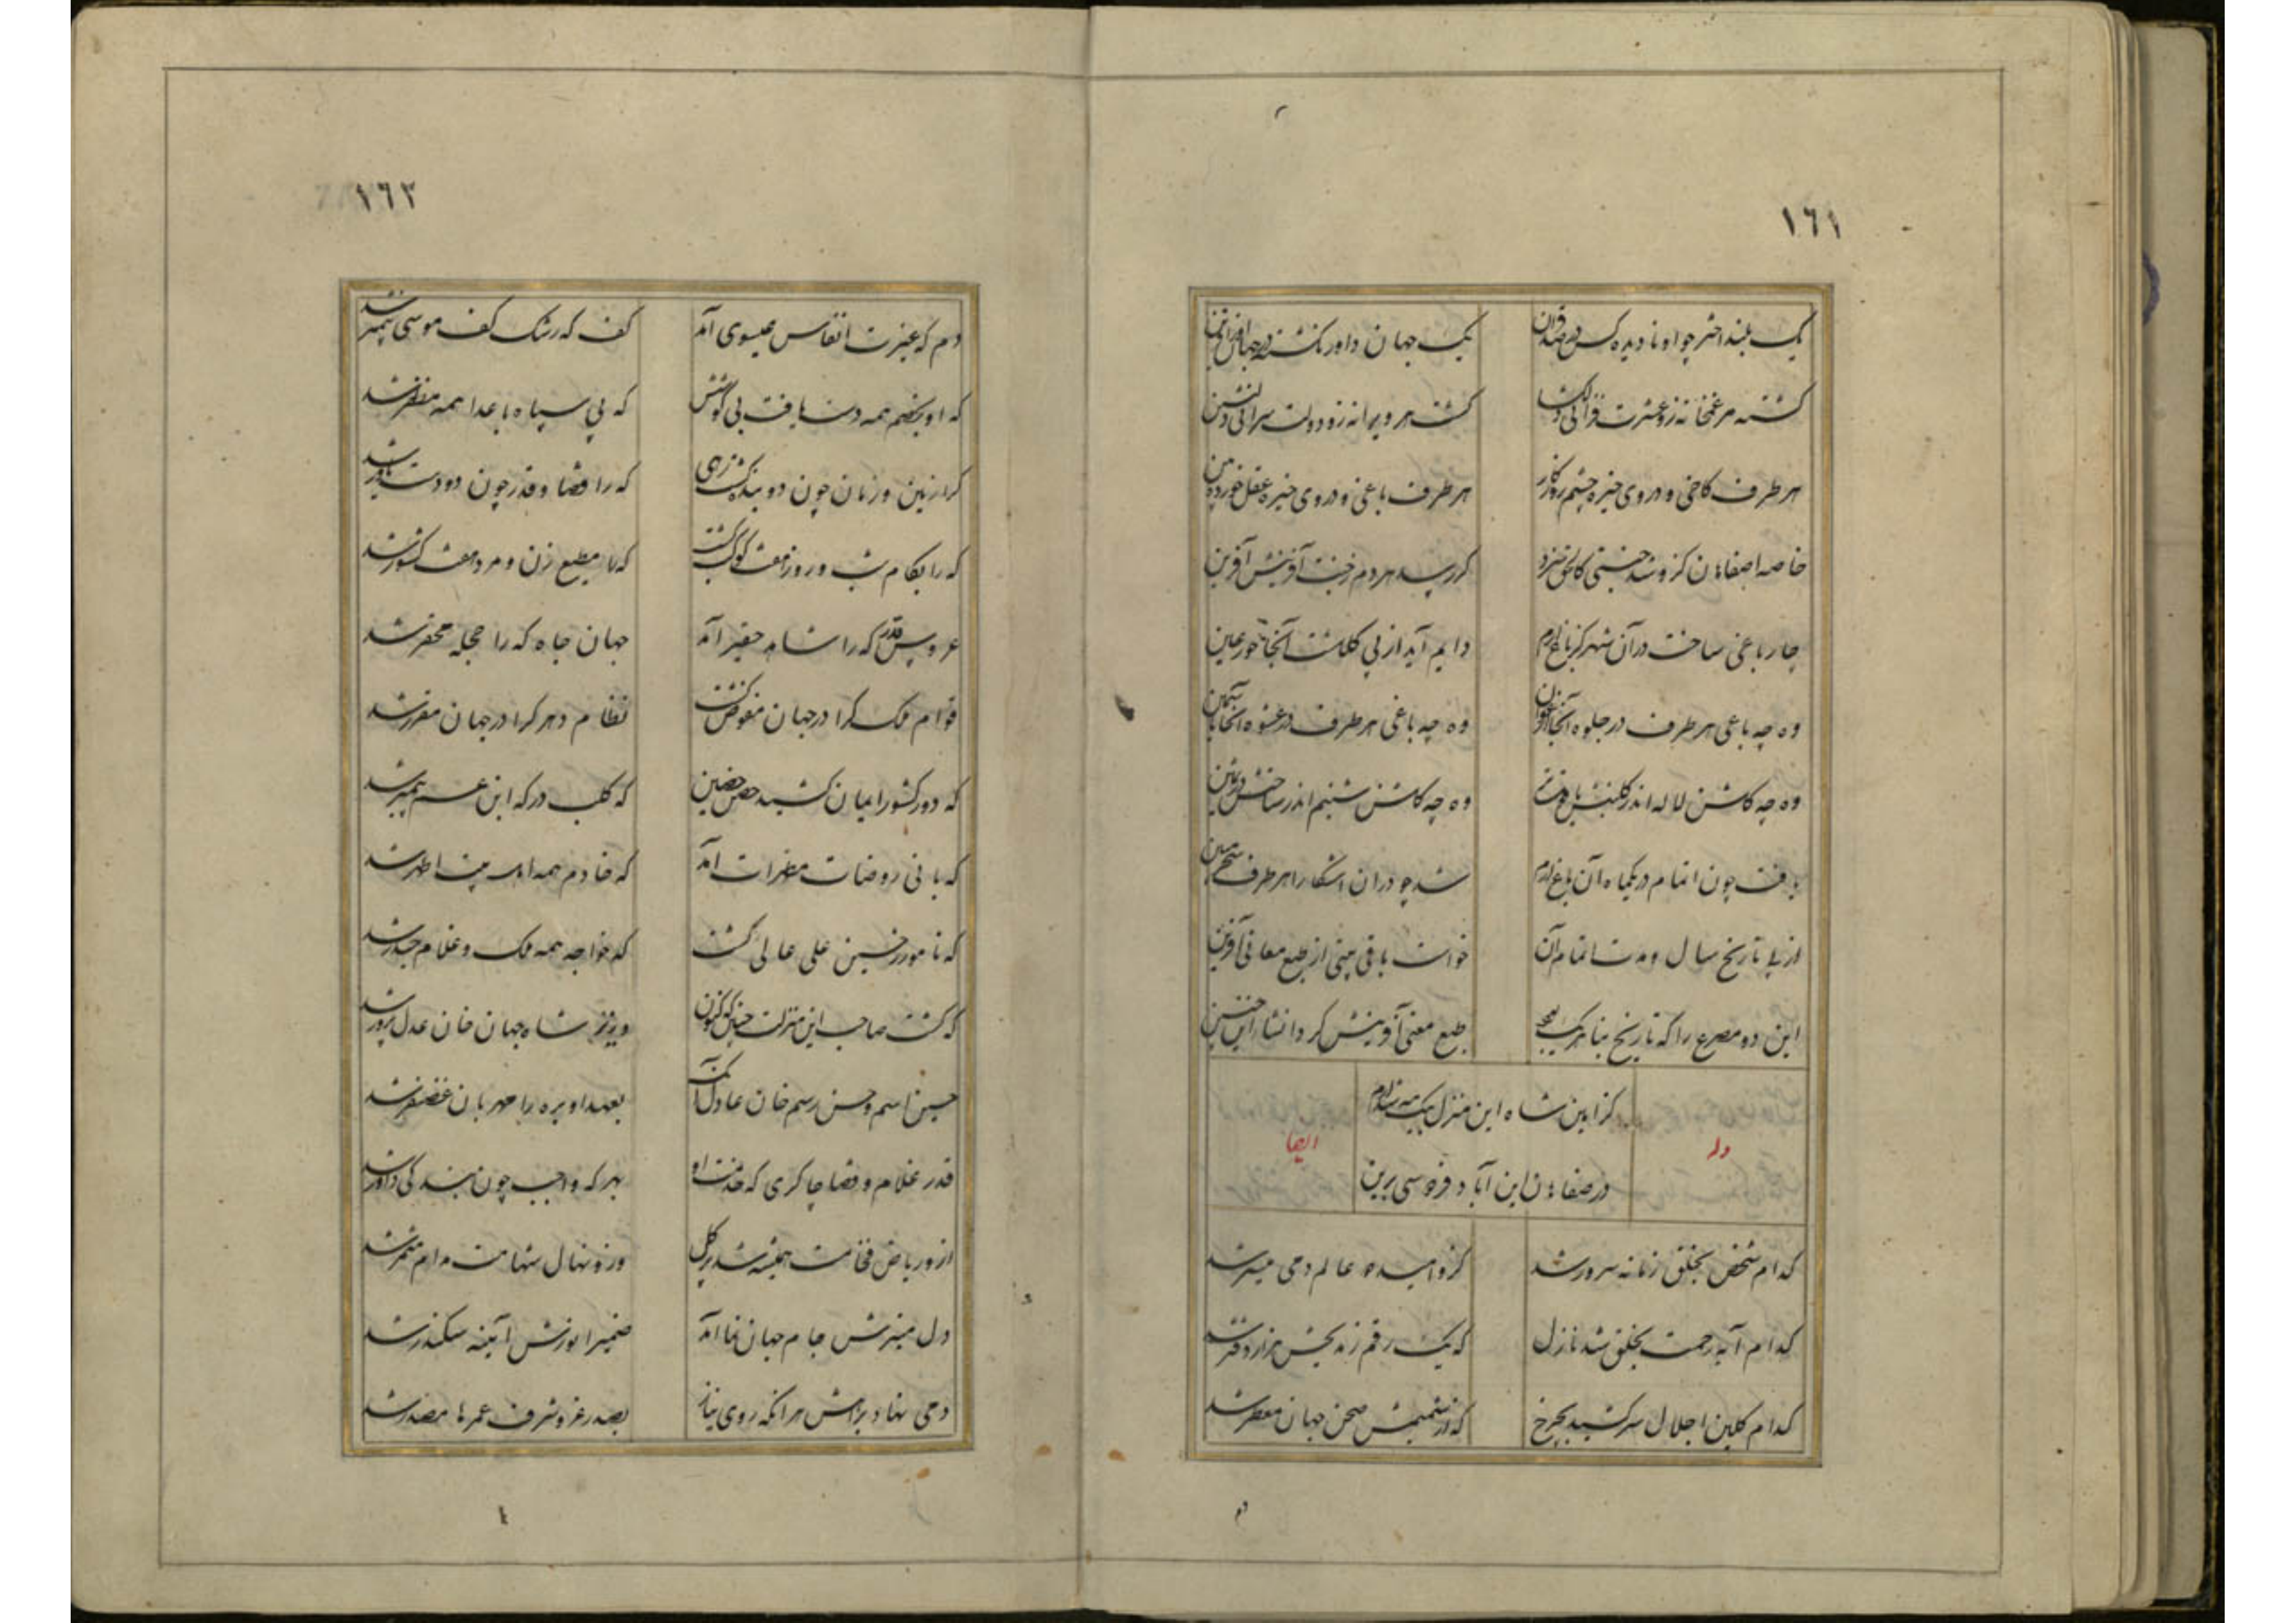 ١٦١
یک بلند اختر چو او نادیده کس در صد قران
یک جهان داور نگشته در جهان
گشته هر غمخانه زو عشرت فزائی دلگشا
گشت هر ویرانه زو دولت سرائی دلنشین
هر طرف کاخی و در وی خیره چشم روزگار
هر طرف باغی و در وی خیره عقل خورده بین
خاصه اصفاهان کزو شد جنتی کاهل خرد
گر رسد هر دم ز جنت آفرینش آفرین
چار باغی ساخت در آن شهر کز باغ ارم
دایم آید از پی گلگشت آنجا حور عین
وه چه باغی هر طرف در جلوه آنجا ارغوان
وه چه باغی هر طرف در عشوه آنجا یاسمین
وه چه گلشن لاله اندر گلبنش
وه چه گلشن شبنم اندر ساحتش در ثمین
یافت چون اتمام در یکماه آن باغ ارم
شد چو در آن اشکارا هر طرف
از پی تاریخ سال و مدت اتمام آن
خواست باقی بیتی از طبع معانی آفرین
این دو مصرع را که تاریخ بنا هر یک
طبع معنی آفرینش کرد انشا این چنین
کز امین شاه این منزل بیک مه شد ارم
در صفاهان این آباد فردوسی برین
وله
ایضا
کدام شخص بخلق زمانه سرور شد
کزو امید همه عالم دمی میسر شد
کدام آیه رحمت بخلق شد نازل
که یک رقم زند بخشش هزار دفتر شد
کدام گلبن اجلال سر کشید بچرخ
که از شمیمش صحن جهان معطر شد
١٦٢
دم که غیرت انفاس عیسوی آمد
کف که رشک کف موسی پیمبر شد
که او بخصم همه دست یافت بی کوشش
که بی سپاه باعدا همه مظفر شد
کرا زمین و زمان چون دو بنده شد زرهی
که را قضا و قدر چون دو دست یاور شد
که را بکام شب و روز هفت کوکب گشت
که را مطیع زن و مرد هفت کشور شد
عروس قدر که را شاهد حقیر آمد
جهان جاه که را حجله محقر شد
قوام ملک کرا در جهان مفوض گشت
نظام دهر کرا در جهان مقرر شد
که دور کشور ایمان کشید حصن حصین
که کلب درگه ابن عم پیمبر شد
که بانی روضات مطهرات آمد
که خادم همه اهل بیت اطهر شد
که نامور ز حسین علی عالی گشت
که خواجه همه ملک و غلام حیدر شد
که گشت صاحب این منزلت چنین که کنون
وزیر شاه جهان خان عدل پرور شد
حسین اسم و حسن رسم خان عادل آنک
بعهد او بره را مهربان غضنفر شد
قدر غلام و قضا چاکری که خدمت او
بهر که واجب چون بندگی داور شد
ازو ریاض فخامت همیشه شد پر گل
وزو نهال شهامت مدام مثمر شد
دل منیرش جام جهان نما آمد
ضمیر انورش آیینه سکندر شد
دمی نهاد براهش هر آنکه روی نیاز
بصدر عز و شرف عمرها مصدر شد